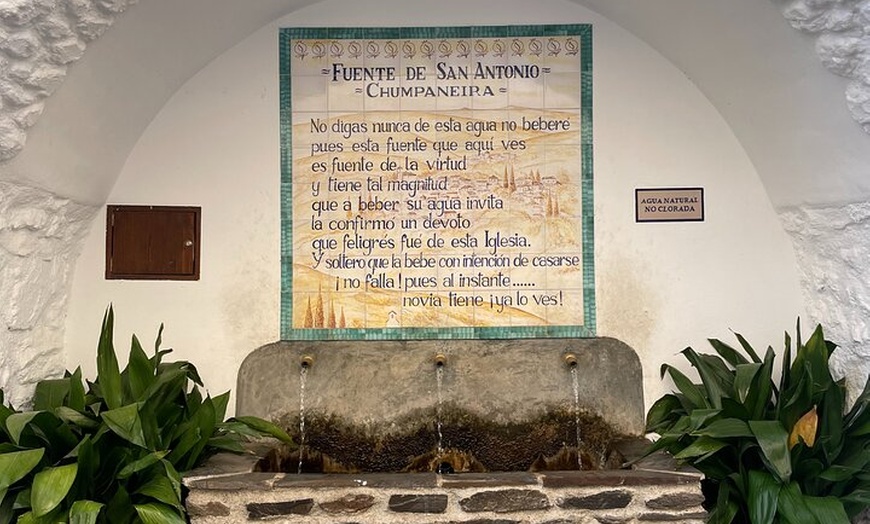 ≈FUENTE DE SAN ANTONIO≈
≈CHUMPANEIRA≈
No digas nunca de esta agua no beberé
pues esta fuente que aquí ves
es fuente de la virtud
y tiene tal magnitud
que a beber su agua invita
la confirmo un devoto
que feligrés fué de esta Iglesia.
Y soltero que la bebe con intención de casarse
¡no falla! pues al instante......
novia tiene ¡ya lo ves!
AGUA NATURAL
NO CLORADA